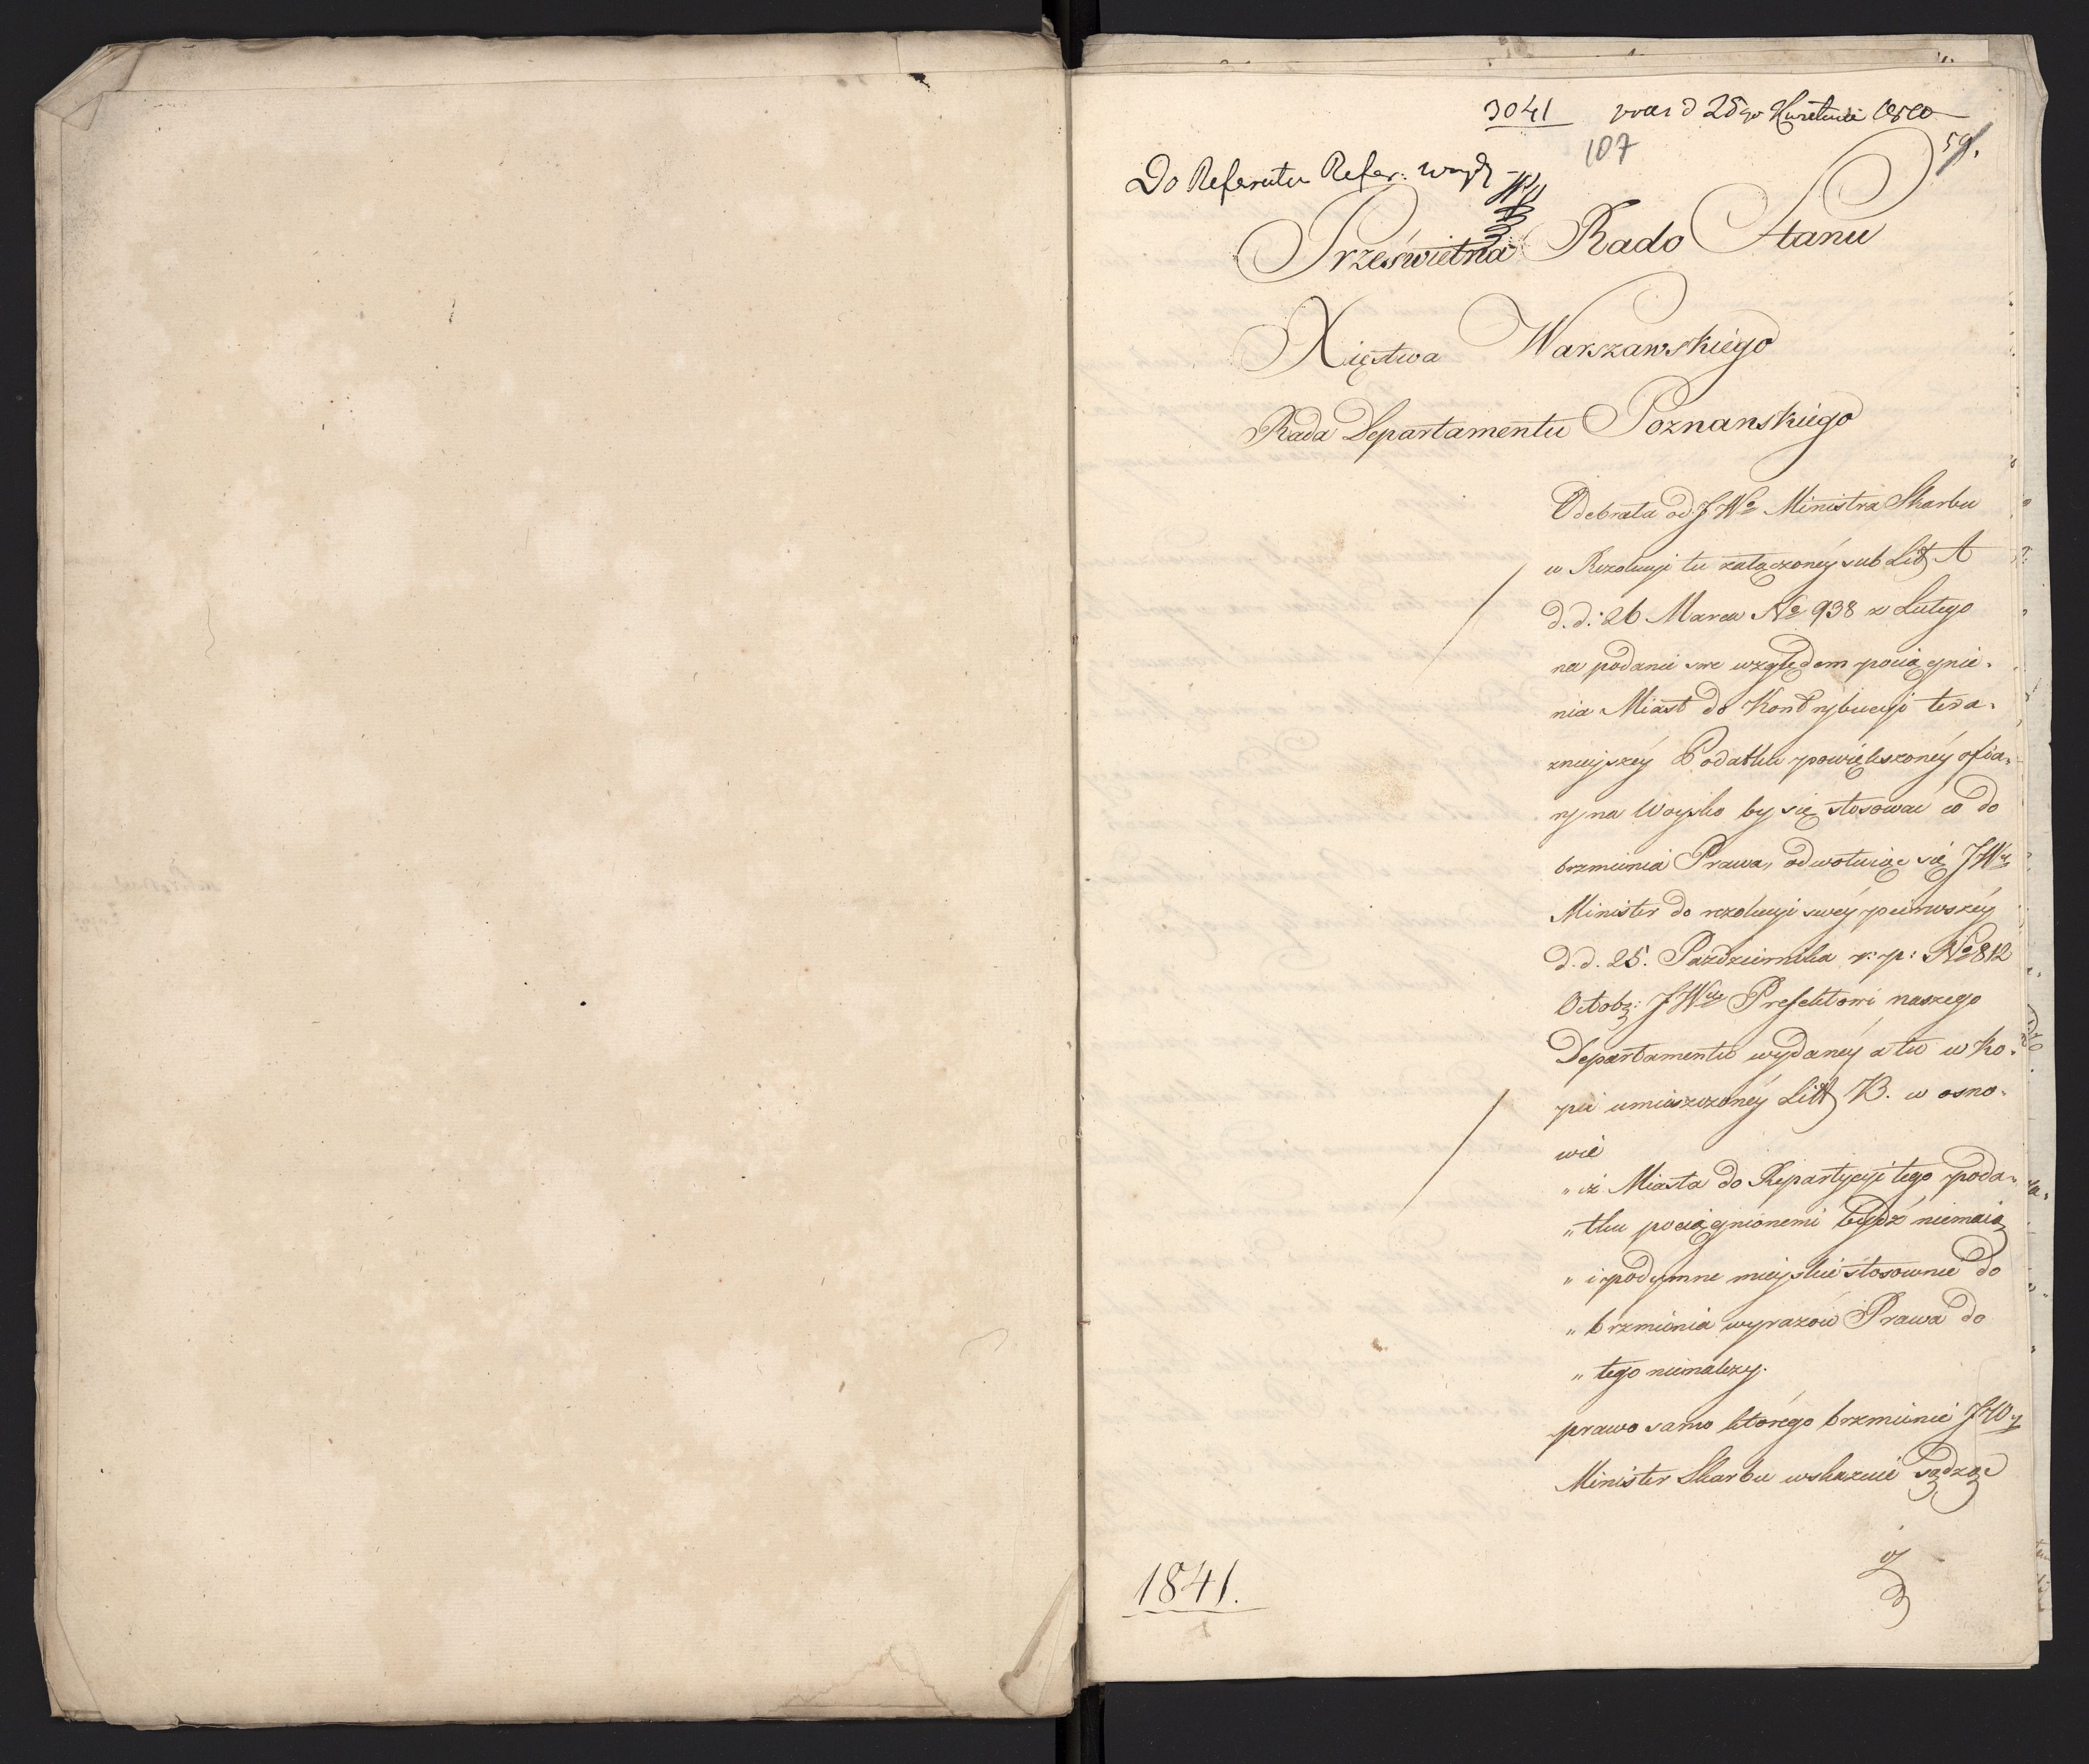 3041 pras d 25go Kwietnia 1810
107
59.
Do Referatu Refer:
Prześwietna Rado Stanu
Xięstwa Warszawskiego
Rada Departamentu Poznanskiego
Odebrała od JWo Ministra Skarbu
w Rezolucyi tu załączoney sub Litt A
d. d: 26 Marca No 938 z Lutego
na podanie swe względem pociągnie-
nia Miast do Kontrybucyi tera-
znieyszey Podatku powiększoney ofia-
ry na Woysko by się stosować co do
brzmienia Prawa, odwołuiąc się JWy
Minister do rezolucyi swey pierwszey
d. d. 25. Pazdziernika r: p: No 812
Octobr: JWu Prefektowi naszego
Departamentu wydaney a tu w Ko-
pii umieszczoney Litt B. w osno-
wie
„ iż Miasta do Repartycyi tego poda-
„ tku pociągnionemi bydź niemaią
„ i podymne mieyskie stosownie do
„ brzmienia wyrazów Prawa do
„ tego nienależy.
prawo samo którego brzmienie JWy
Minister Skarbu wskazuie sądząc
iż
1841.